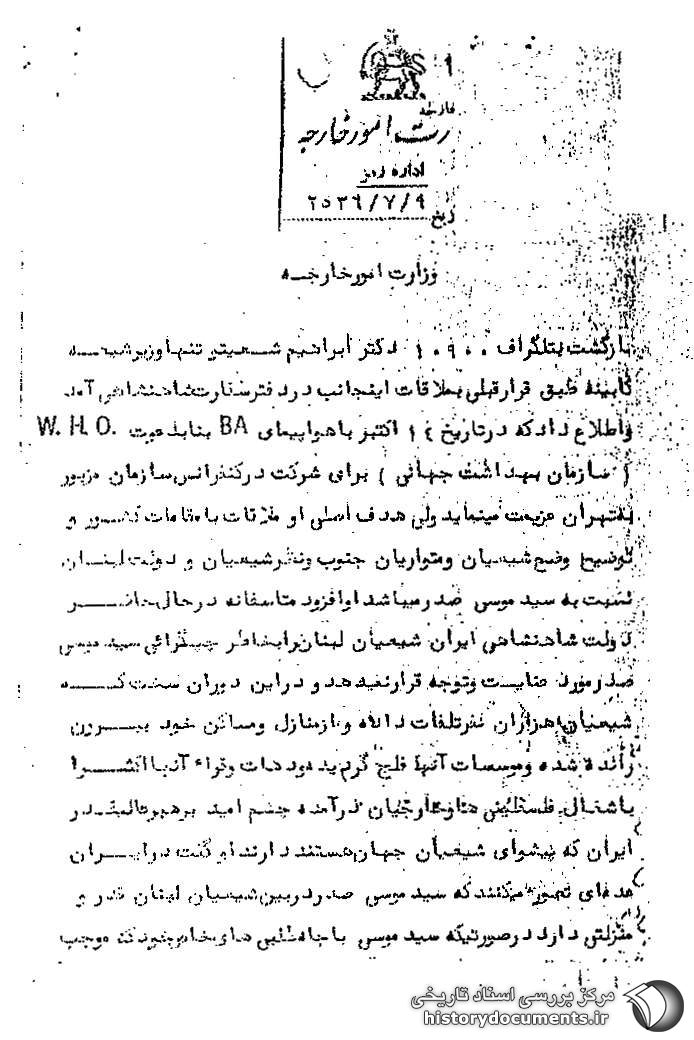 ۱۹
خارجه
رت امور خارجه
اداره رمز
ریخ ۲۵۳۶/۷/۹
وزارت امورخارجه
بازگشت بتلگراف ۱۰۹۰۰ دکتر ابراهیم شعیتو تنها وزیر شیعه
کابینه طبق قرار قبلی بملاقات اینجانب در دفتر سفارت شاهنشاهی آمد
واطلاع داد که در تاریخ ۱۴ اکتبر با هواپیمای BA بنا بدعوت W.H.O.
( سازمان بهداشت جهانی ) برای شرکت در کنفرانس سازمان مزبور
بتهران عزیمت مینماید ولی هدف اصلی او ملاقات با مقامات کشور و
توضیح وضع شیعیان ومتواریان جنوب ونظر شیعیان و دولت لبنان
نسبت به سید موسی صدر میباشد او افزود متاسفانه در حال حاضر
دولت شاهنشاهی ایران شیعیان لبنان را بخاطر چپگرائی سید موسی
صدر مورد عنایت وتوجه قرار نمیدهد و در این دوران سخت که
شیعیان هزاران نفر تلفات داده و از منازل ومساکن خود بیرون
رانده شده و موسسات آنها فلج گردیده ودهات وقراء آنها اکثرا
باشغال فلسطینی ها وخارجیان درآمده چشم امید برهبر عالیقدر
ایران که پیشوای شیعیان جهان هستند دارند او گفت در ایران
عده ای تصور میکنند که سید موسی صدر در بین شیعیان لبنان قدر و
منزلتی دارد در صورتیکه سید موسی با جاه طلبی های خاص خود که موجب
مرکز بررسی اسناد تاریخی
historydocuments.ir